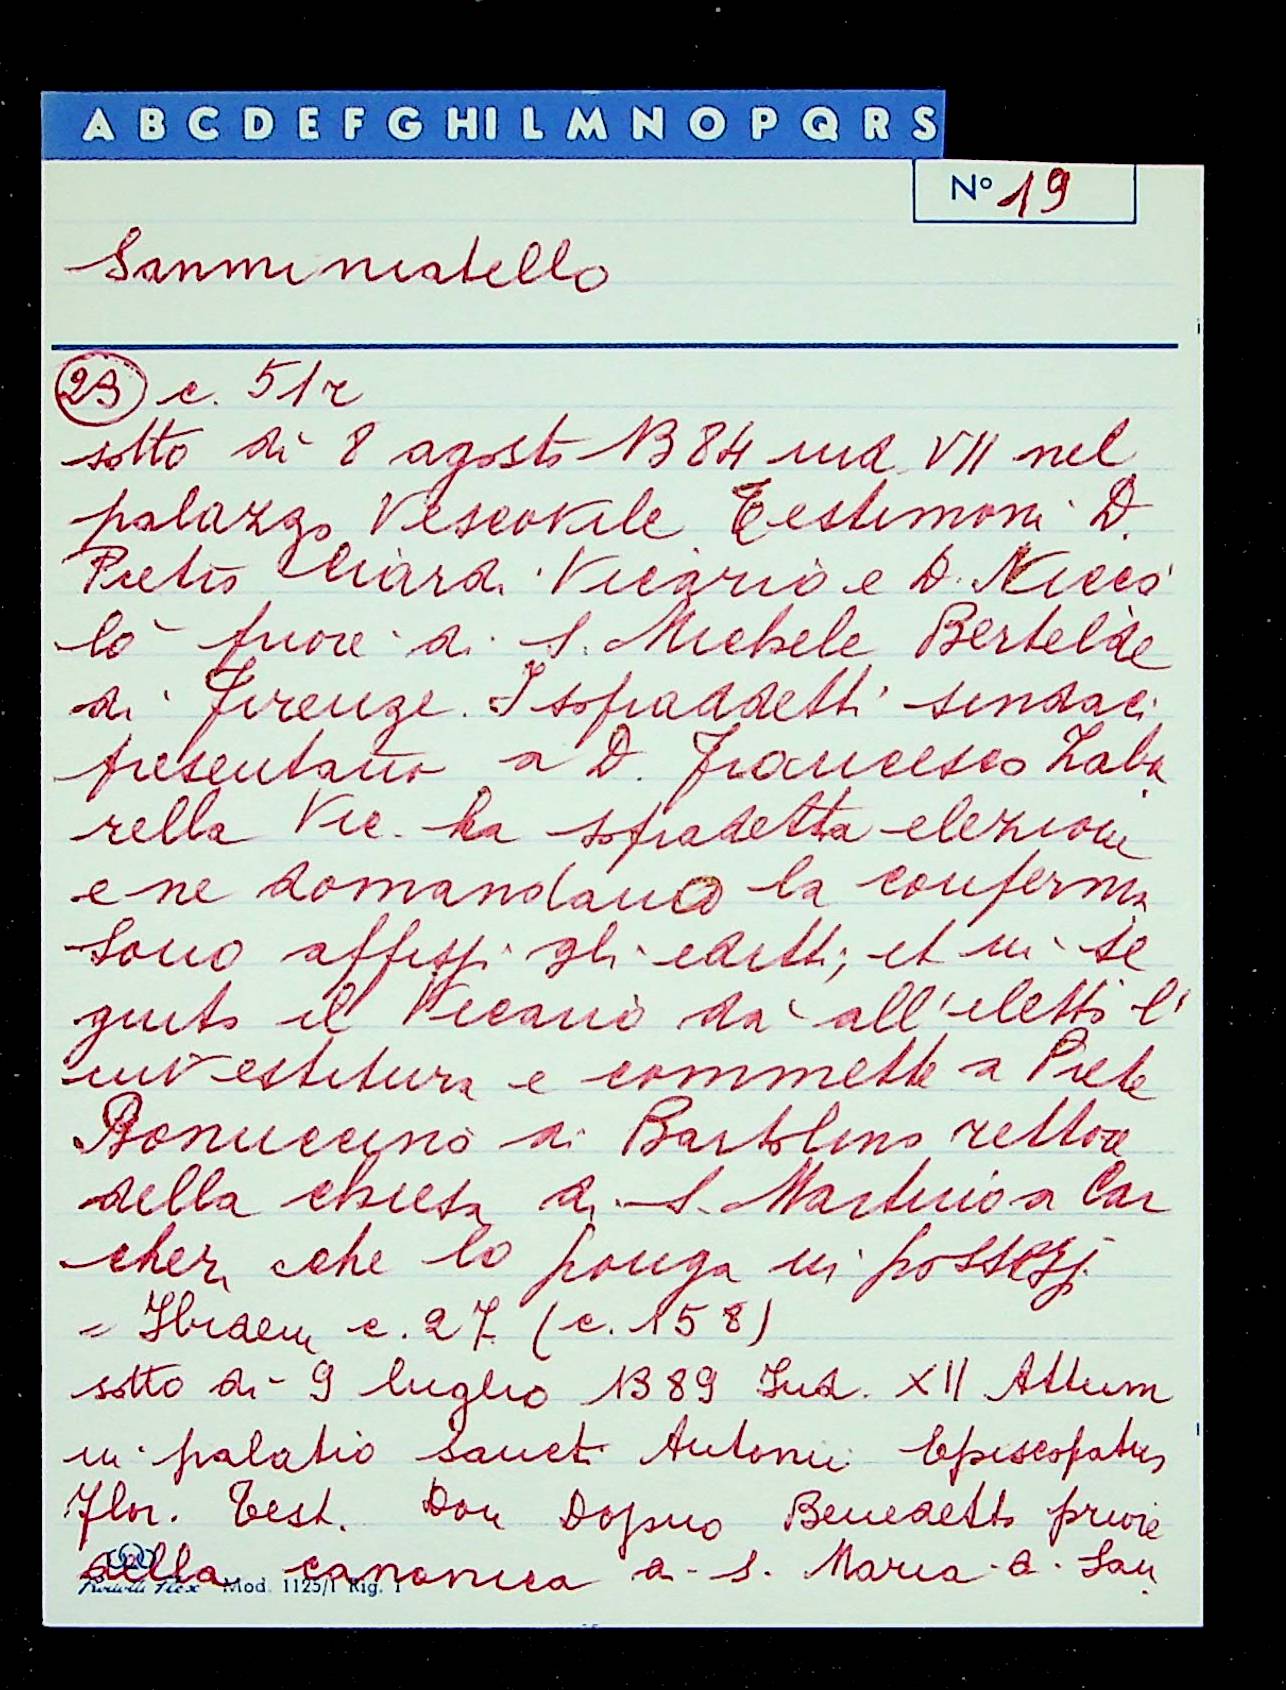 A B C D E F G HI L M N O P Q R S
N° 19
Sanminiatello
23 c. 51r
sotto dì 8 agosto 1384 ind. VII nel
palazzo Vescovile Testimoni D.
Pietro Vicario e D. Nicco
lò priore di S. Michele Bertelde
di Firenze. I sopraddetti sindaci
presentano a D. Francesco Zaba
rella Vic. la sopradetta elezione
e ne domandano la conferma
Sono affissi gli editti; et in se
guito il Vicario dà all'eletto l'
investitura e commette a Prete
Bonuccino di Bartolino rettore
della chiesa di S. Martino a Car
cheri che lo ponga in possessj
= Ibidem c. 27 (c. 158)
sotto dì 9 luglio 1389 Ind. XII Attum
in palatio sancti Antonii Episcopatus
Flor. Test. Don Dopno Benedetto priore
della canonica di S. Maria a San
Mod. 1125/1 Rig. 1